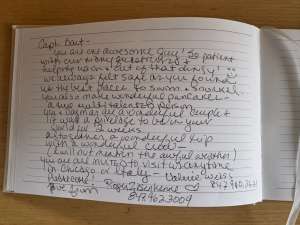 Capt. Dart -
you are one awesome guy! So patient
with our many questions &
helping us in & out of that dingy!
We always felt safe as you found
us the best places to swim & snorkel.
You also make wonderful pancakes -
a true multitalented person.
You & are a wonderful couple &
it was a privilege to be in your
world for 2 weeks.
Altogether a wonderful trip
with a wonderful crew -
(I will not mention the awful weather)
You are an invite to visit us anytime
in Chicago or - Valerie Weiss
847.
Roger
847.962.3009